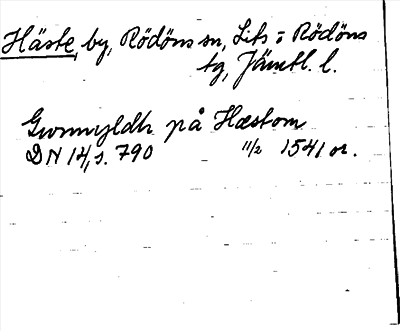 Häste, by, Rödöns sn, Lits o Rödöns
tg, Jämtl. l.
Gunnmyldh på Hæstom
DN 14, s. 790 11/2 1541 or.